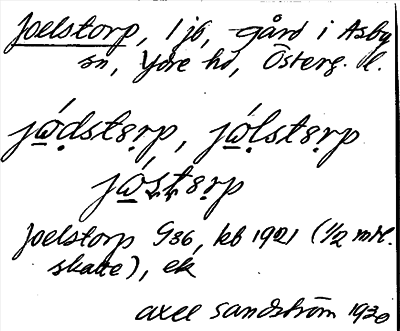 Joelstorp, 1 jb, gård i Asby
sn, Ydre hd, Österg. l.
jώdstꞛrp, jώlstꞛrp
jώstꞛrp
Joelstorp G36, kb 1921 (1/2 mtl.
skatte), ek
Axel Sandström 1930